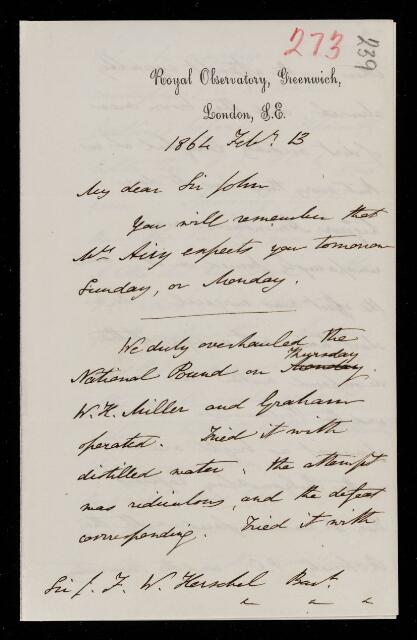 273
239
Royal Observatory, Greenwich,
London, S.E.
1864 Feb. 13
My dear Sir John
You will remember that
Mrs Airy expects you tomorrow
Sunday, or Monday.
We duly overhauled the
Thursday
National Pound on Monday.
W. H. Miller and Graham
operated. Tried it with
distilled water: the attempt
was ridiculous, and the defeat
corresponding. Tried it with
Sir J. F. W. Herschel Bart.